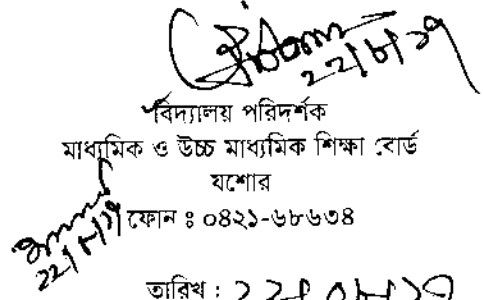 ২২/৮/১৭
বিদ্যালয় পরিদর্শক
মাধ্যমিক ও উচ্চ মাধ্যমিক শিক্ষা বোর্ড
যশোর
ফোন ঃ ০৪২১-৬৮৬৩৪
২২/৮/১৭
তারিখ :